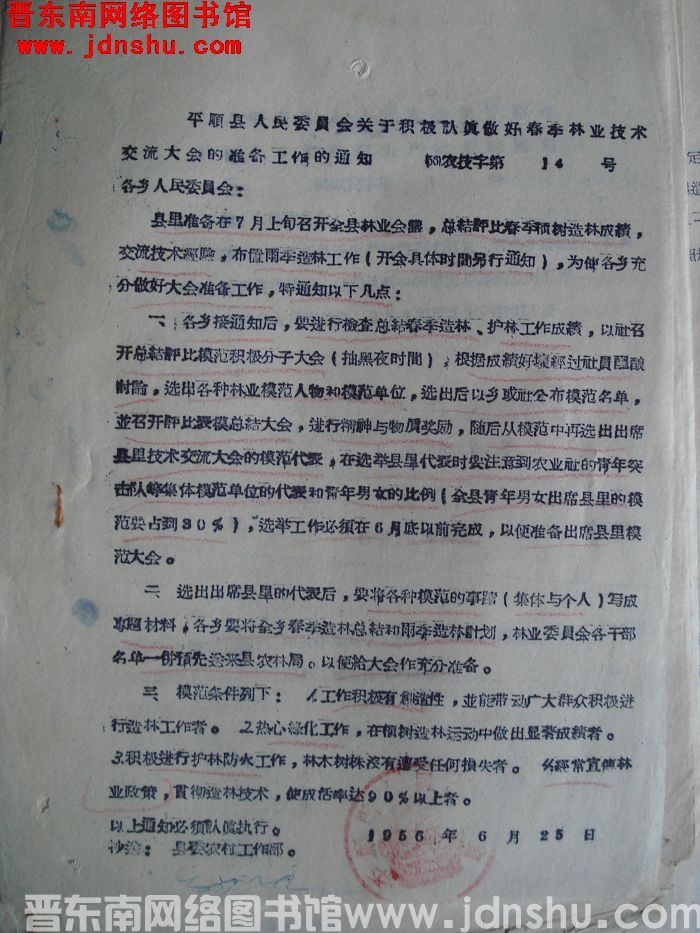 晋东南网络图书馆
www.jdnshu.com
平顺县人民委員会关于积极认真做好春季林业技术
交流大会的准备工作的通知 (56)农技字第 14 号
各乡人民委員会：
县里准备在7月上旬召开全县林业会議，总結評比春季植树造林成績，
交流技术經驗，布置雨季造林工作（开会具体时間另行通知），为使各乡充
分做好大会准备工作，特通知以下几点：
一、各乡接通知后，要进行檢查总結春季造林、护林工作成績，以社召
开总結評比模范积极分子大会（抽黑夜时間），根据成績好壞經过社員醞酿
討論，选出各种林业模范人物和模范单位，选出后以乡或社公布模范名单，
並召开評比奖模总結大会，进行精神与物質奖励，随后从模范中再选出出席
县里技术交流大会的模范代表，在选举县里代表时要注意到农业社的青年突
击队等集体模范单位的代表和青年男女的比例（全县青年男女出席县里的模
范要占到30%），选举工作必须在6月底以前完成，以便准备出席县里模
范大会。
二、选出出席县里的代表后，要将各种模范的事蹟（集体与个人）写成
專題材料，各乡要将全乡春季造林总結和雨季造林計划，林业委員会各干部
名单一份預先送来县农林局。以便給大会作充分准备。
三、模范条件列下：1.工作积极有創造性，並能带动广大群众积极进
行造林工作者。2.热心綠化工作，在植树造林运动中做出显著成績者。
3.积极进行护林防火工作，林木树株沒有遭受任何損失者。4.經常宣傳林
业政策，貫彻造林技术，使成活率达90%以上者。
以上通知必须认真执行。 1956年6月25日
抄送：县委农村工作部。
晋东南网络图书馆www.jdnshu.com